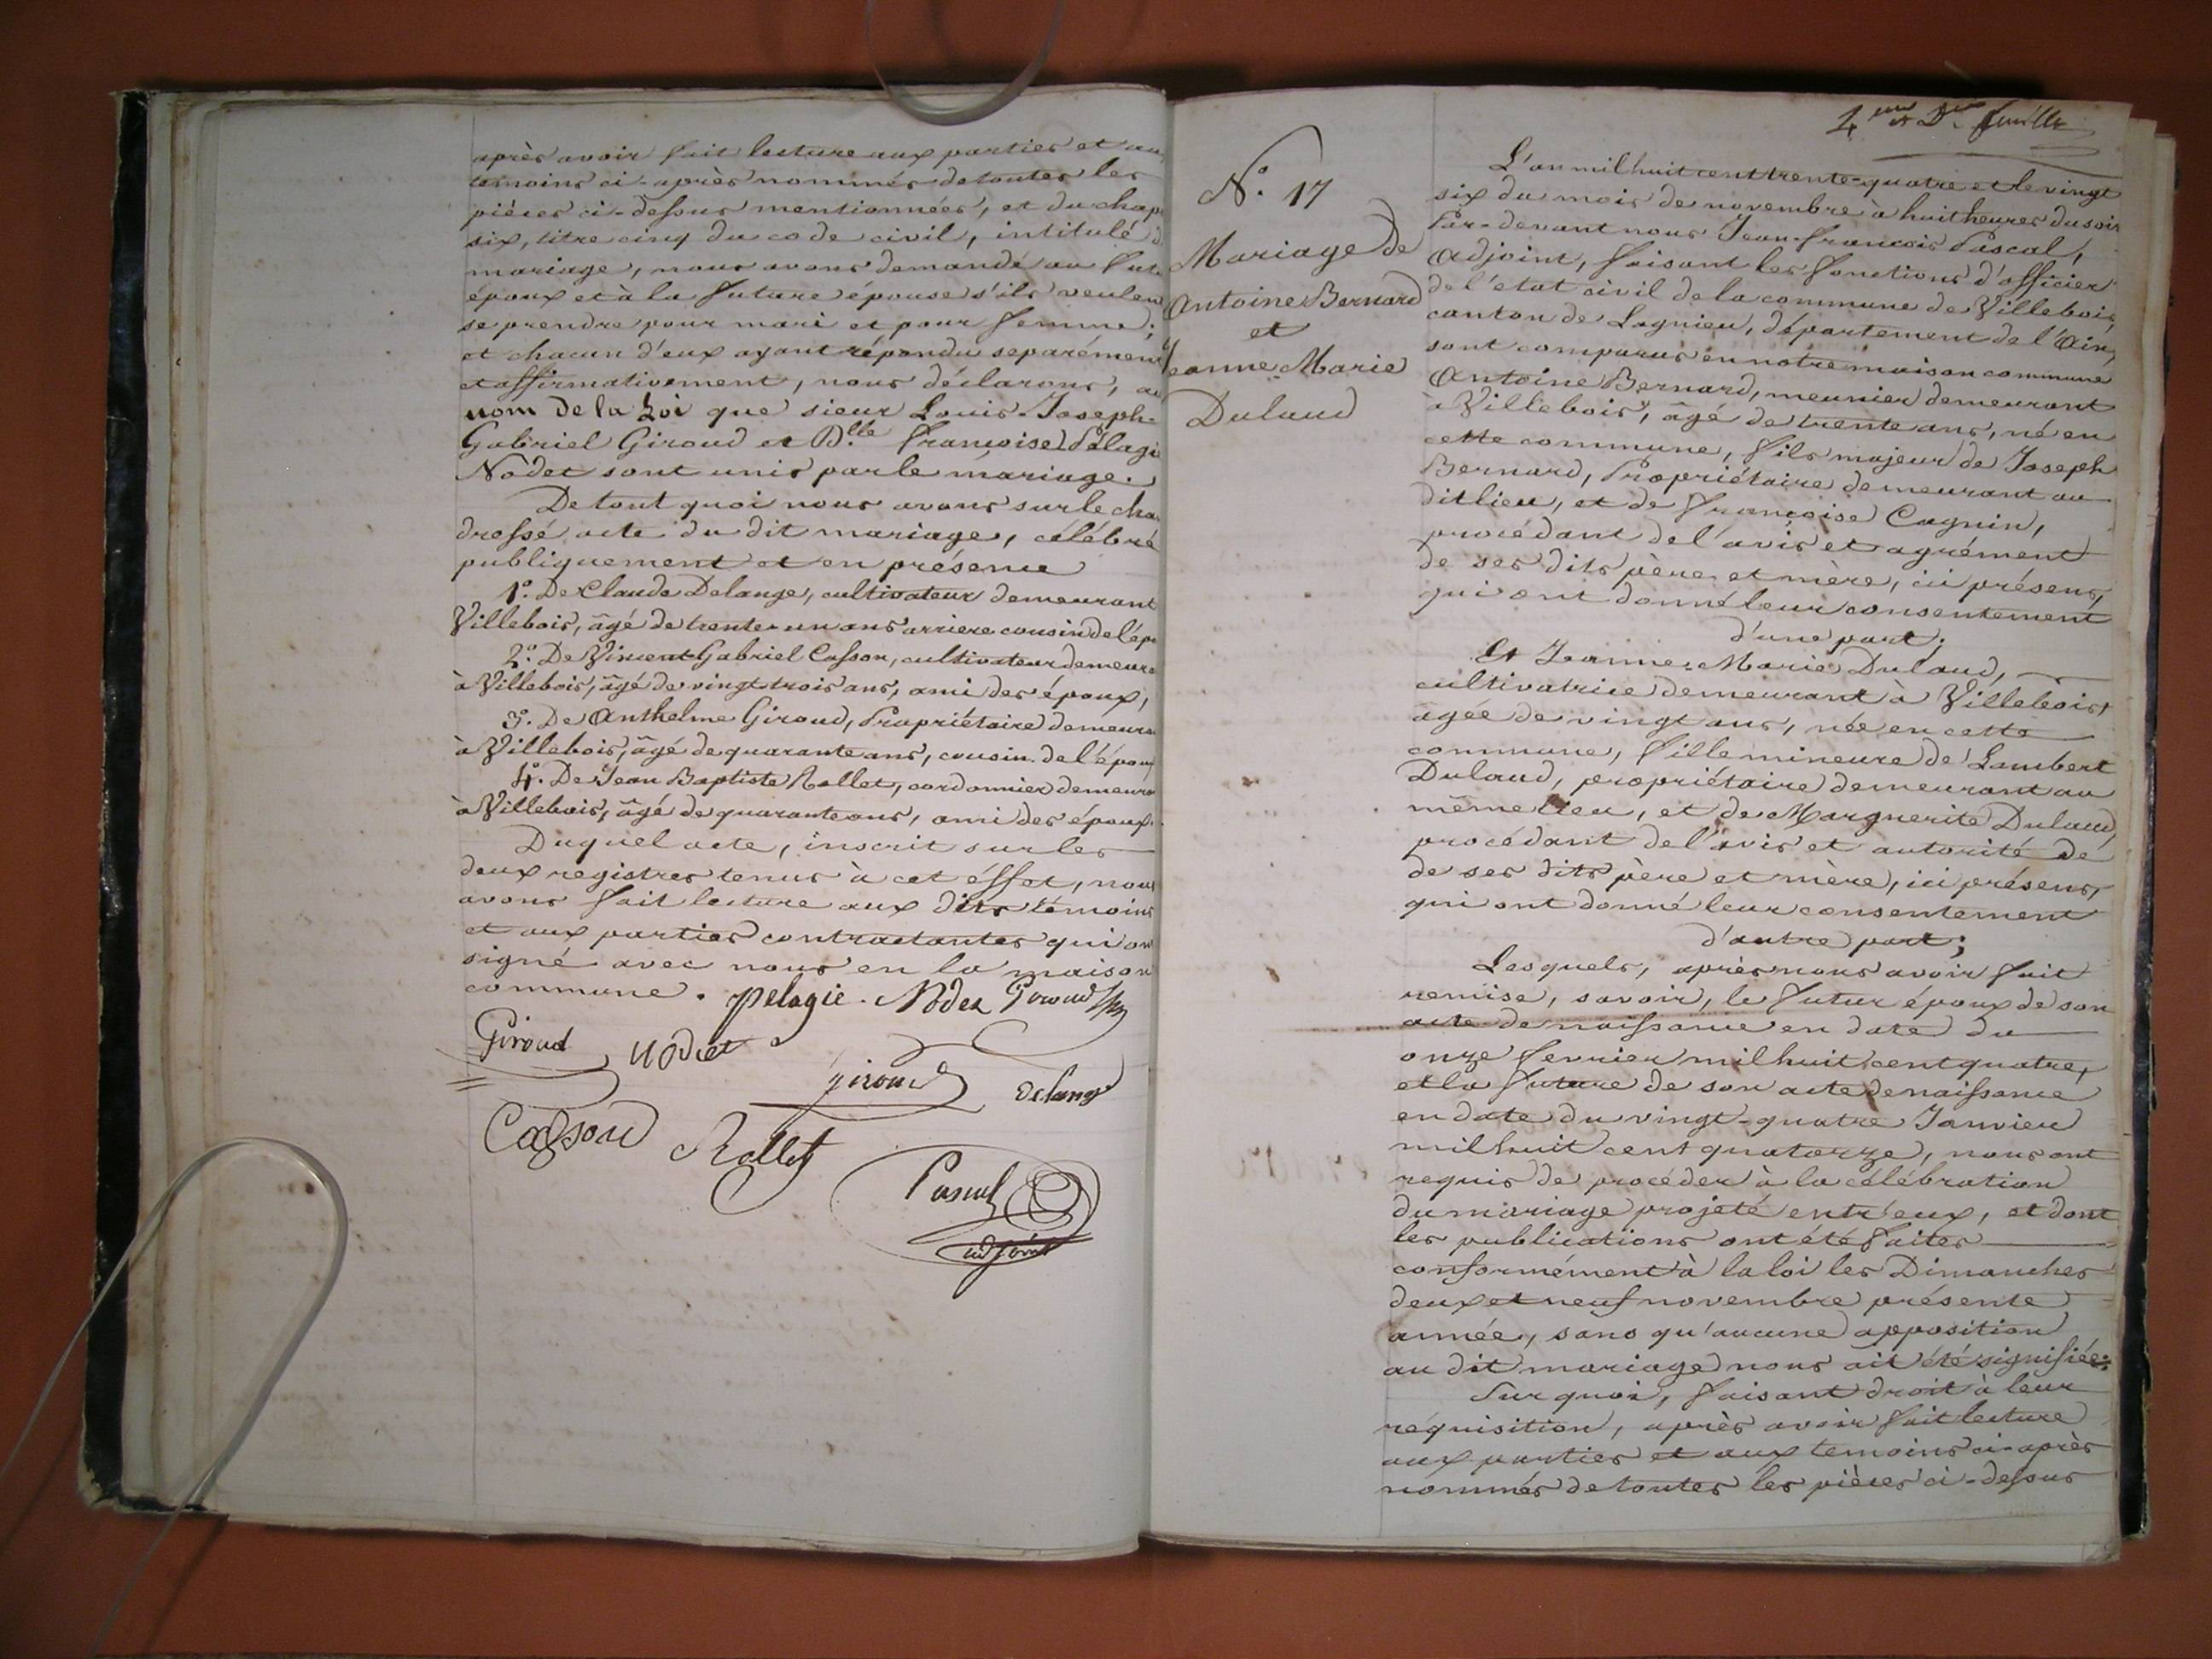 après avoir fait lecture aux parties et au
témoins ci-après nommés de toutes les
pièces ci-dessus mentionnées, et du chap
six, titre cinq du code civil, intitulé d
mariage, nous avons demandé au fut
époux et à la future épouse s'ils veulen
se prendre pour mari et pour femme;
et chacun d'eux ayant répondu séparémen
et affirmativement, nous déclarons, au
nom de la Loi que sieur Louis-Joseph-
Gabriel Giroud et D.lle françoise Pélagie
Nodet sont unis par le mariage.
De tout quoi nous avons sur le cha
dressé acte du dit mariage, célébré
publiquement et en présence
1.° De Claude Delange, cultivateur demeurant
Villebois, âgé de trente-un ans arriere cousin de l'épo
2.° De Vincent Gabriel Casson, cultivateur demeura
à Villebois, âgé de vingt trois ans, ami des époux,
3.° De Anthelme Giroud, Propriétaire demeura
à Villebois, âgé de quarante ans, cousin de l'époux
4.° De Jean Baptiste Rollet, cordonnier demeura
à Villebois, âgé de quarante ans, ami des époux.
Duquel acte, inscrit sur les
deux registres tenus à cet éffet, nous
avons fait lecture aux dits témoins
et aux parties contractantes qui on
signé avec nous en la maison
commune. pelagie. Nodez Giroud
Giroud Nodet
giroud delange
Casson Rollet
Pascal
adjoint
4.eme et D.re feuille
N.° 17
Mariage de
Antoine Bernard
et
Jeanne Marie
Dulaud
L'an mil huit cent trente-quatre et le vingt
six du mois de novembre à huit heures du soir
Par-devant nous Jean-françois Pascal,
Adjoint, faisant les fonctions d'officier
de l'état civil de la commune de Villebois,
canton de Lagnieu, département de l'Ain,
sont comparus en notre maison commune
Antoine Bernard, meunier demeurant
à Villebois, âgé de trente ans, né en
cette commune, fils majeur de Joseph
Bernard, Propriétaire demeurant au
dit lieu, et de françoise Cagnin,
procédant de l'avis et agrément
de ses dits père et mère, ici présens,
qui ont donné leur consentement
d'une part;
Et Jeanne-Marie Dulaud,
cultivatrice demeurant à Villebois,
agée de vingt ans, née en cette
commune, fille mineure de Lambert
Dulaud, propriétaire demeurant au
même lieu, et de Marguerite Dulaud,
procédant de l'avis et autorité de
de ses dits père et mère, ici présens,
qui ont donné leur consentement
d'autre part;
Lesquels, après nous avoir fait
remise, savoir, le futur époux de son
acte de naissance en date du
onze fevrier mil huit cent quatre,
et la future de son acte de naissance
en date du vingt-quatre Janvier
mil huit cent quatorze, nous ont
requis de procéder à la célébration
du mariage projeté entr'eux, et dont
les publications ont été faites
conformément à la loi les Dimanches
deux et neuf novembre présente
année, sans qu'aucune apposition
au dit mariage nous ait été signifiée;
Sur quoi, faisant droit à leur
réquisition, après avoir fait lecture
aux parties et aux temoins ci-après
nommés de toutes les pièces ci-dessus